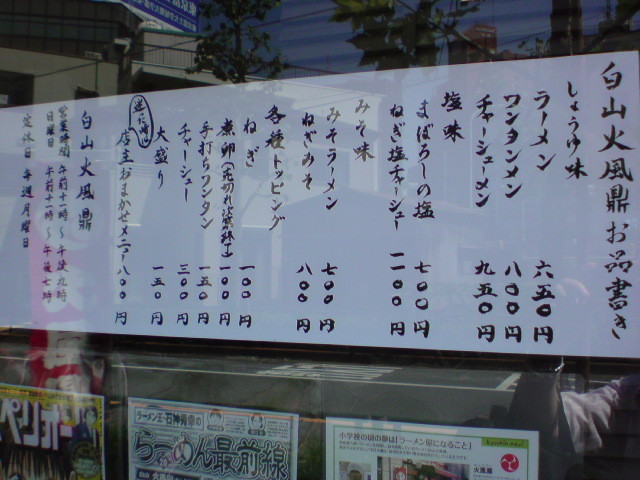 白山火風鼎お品書き
しょうゆ味
ラーメン 六五〇円
ワンタンメン 八〇〇円
チャーシューメン 九五〇円
塩味
まぼろしの塩 七〇〇円
ねぎ塩チャーシュー 一一〇〇円
みそ味
みそラーメン 七〇〇円
ねぎみそ 八〇〇円
各種トッピング
ねぎ 一〇〇円
煮卵(売切れ次第終了) 一〇〇円
手打ちワンタン 一五〇円
チャーシュー 三〇〇円
大盛り 一五〇円
店主おまかせメニュー 八〇〇円
白山火風鼎
営業時間 午前十一時〜午後九時
日曜日 午前十一時〜午後七時
定休日 毎週月曜日
ペリオー
ラーメン王・石神秀幸の
らーめん最前線
小学校の頃の夢は「ラーメン屋になること」
火風鼎